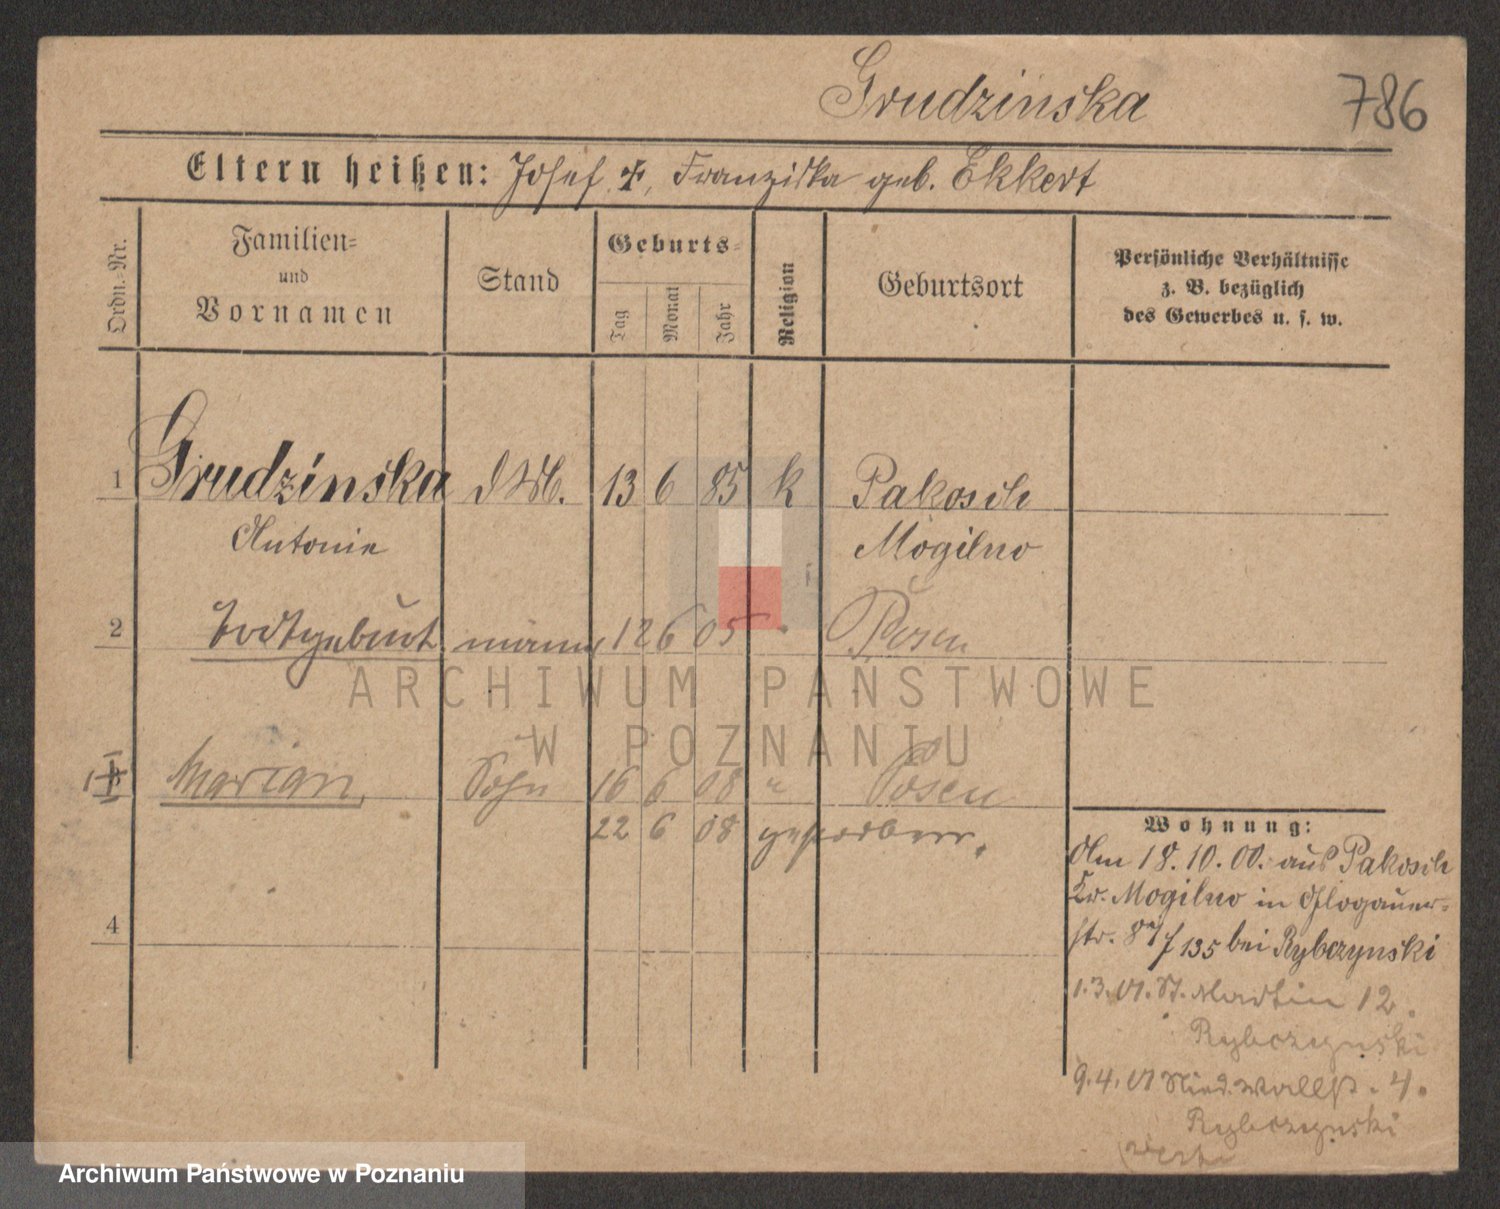 Grudzinska
786
Eltern heißen: Josef †, Franziska geb. Ekkert
Ordn.-Nr.
Familien-
und
Vornamen
Stand
Geburts-
Tag
Monat
Jahr
Religion
Geburtsort
Persönliche Verhältnisse
z. B. bezüglich
des Gewerbes u. s. w.
1 Grudzinska 13 6 85 k Pakosch
Antonie Mogilno
2 Todtgeburt männl 12 6 05 " Posen
Marian, Sohn 16 6 08 " Posen
22 6 08 gestorben.
4
Wohnung:
Am 18.10.00. aus Pakosch
Kr. Mogilno in Glogauer-
str. bei Rybczynski
1.3.01. St. Martin 12.
Rybczynski
9.4.01 Nied. Wallstr. 4.
Rybczynski
ARCHIWUM PAŃSTWOWE
W POZNANIU
Archiwum Państwowe w Poznaniu